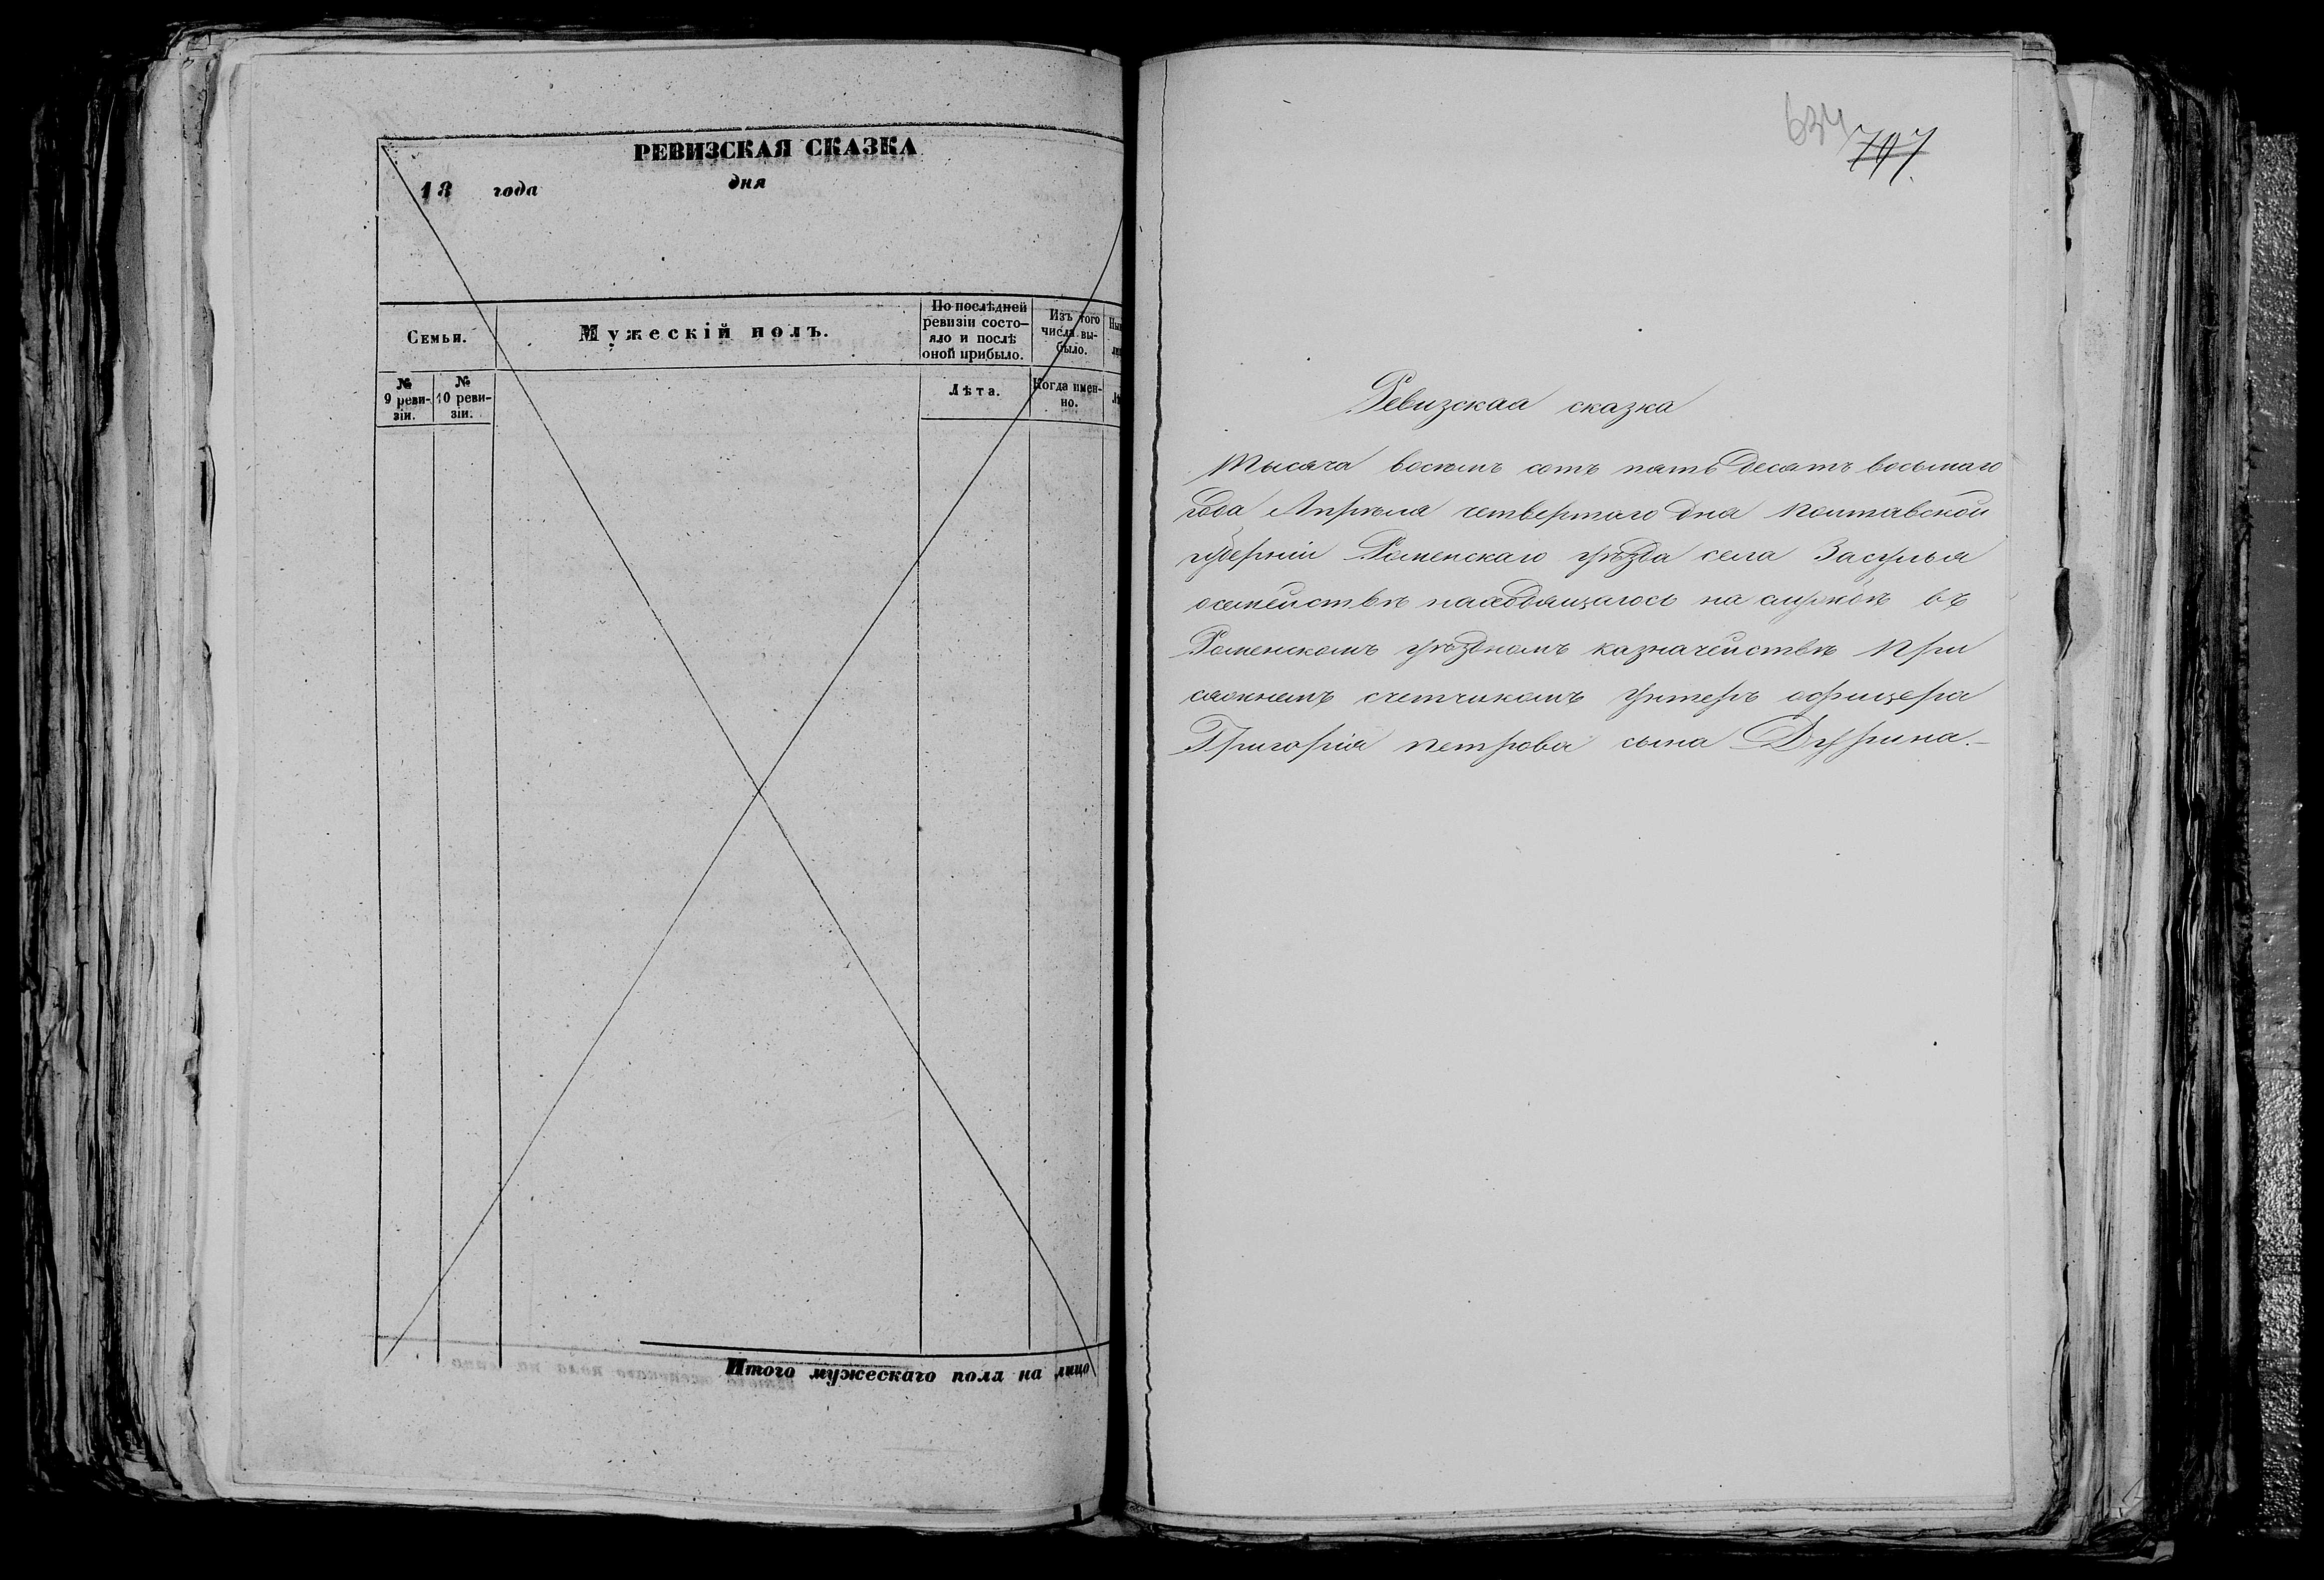 РЕВИЗСКАЯ СКАЗКА
18 года дня
Семьи.
Мужескій полъ.
По послѣдней
ревизіи состо-
яло и послѣ
оной прибыло.
Изъ того
числа вы-
было.
№
9 реви-
зіи.
№
10 реви-
зіи.
Лѣта.
Когда имен-
но.
Итого мужескаго пола на лицо
634
707
Ревизская сказка
Тысяча восемь сотъ пять десятъ восьмаго
года Апрѣля четвертаго дня Полтавской
губерніи Роменскаго уѣзда села Засулья
о семействѣ находящагося на службѣ въ
Роменскомъ уѣздномъ казначействѣ При
сяжнымъ счетчикомъ унтеръ офицера
Григорія Петрова сына